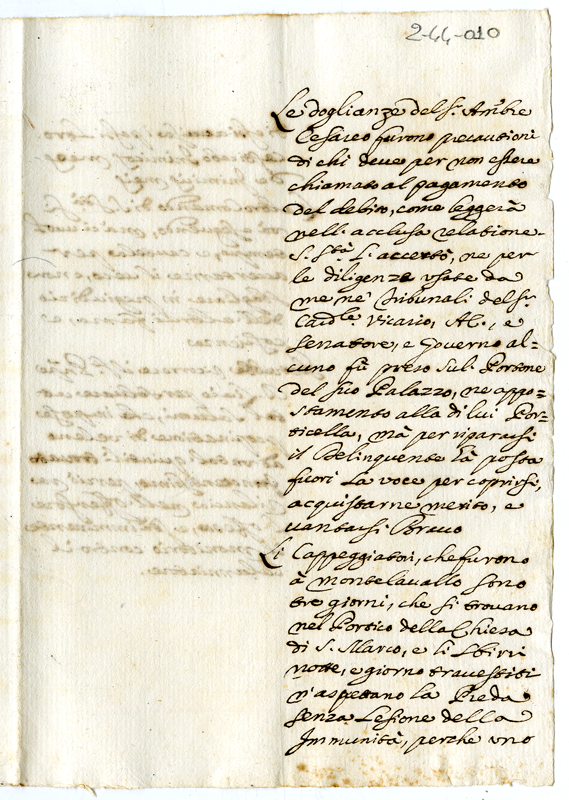 2-44-010
Le doglianze del Sr. Amb.re
Cesareo furono precautioni
di chi deve per non essere
chiamato al pagamento
del debito, come leggerà
nell'acclusa relatione.
S. Stà L'accertò, ne per
le diligenze usate da
me ne' Tribunali del Sr.
Card.le Vicario, A.C., e
Senatore, e Governo al=
cuno fù preso sul Portone
del suo Palazzo, ne appo=
stamento alla di lui Por=
ticella, mà per
il Delinquente hà posta
fuori la voce per coprirsi,
acquistarne merito, e
vantarsi Bravo
Li Cappeggiatori, che furono
à Montecavallo sono
tre giorni, che si trovano
nel Portico della Chiesa
di S. Marco, e li Sbirri
notte, e giorno travestiti
n'aspettano la Preda
senza Lesione della
Immunità, perche uno